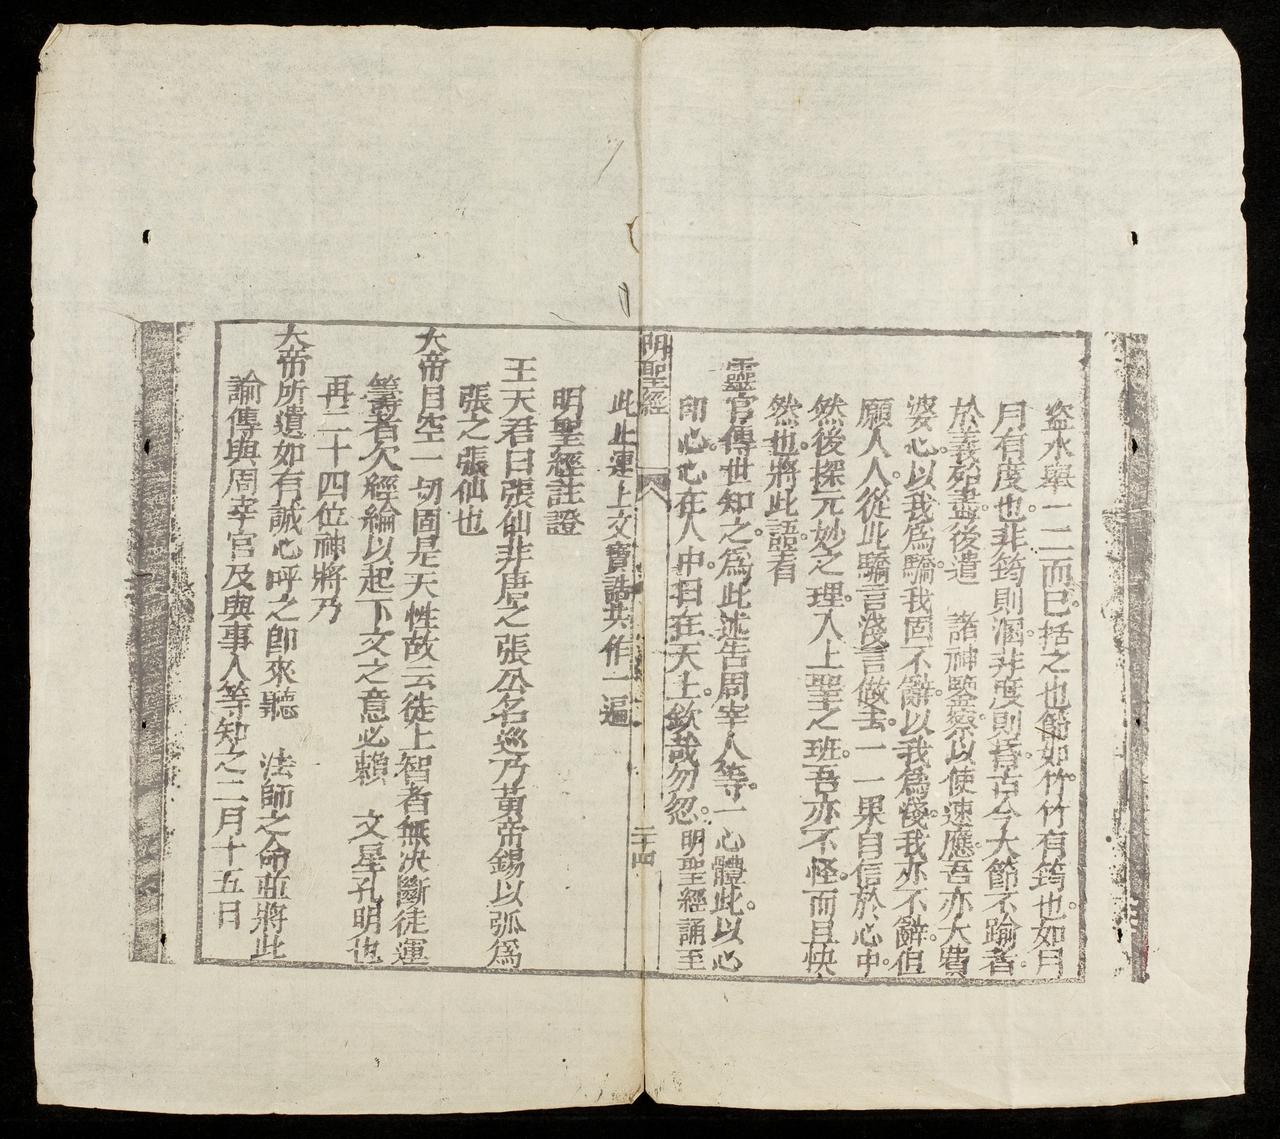 盜水舉一二而已。括之也節如竹。竹有筠也。如月
月有度也。非筠則溷。非度則昏。古今大節不踰者。
於義始盡。後遣 諸神鑒察。以使速應。吾亦大費
婆心。以我為驕。我固不辭。以我為淺。我亦不辭。但
願人人從此驕言淺言做去。一一果自信於心中。
然後探元妙之理。入上聖之班。吾亦不怪。而且快
然也。將此語語者
靈官傳世知之。為此述告周宰人等。一心體此。以心
印心。心在人中。日在天上。欽哉勿忽。明聖經誦至
明聖經 二十四
此止運上文寶誥共作一遍
明聖經註證
王天君曰張仙非唐之張公名巡乃黃帝錫以弧為
張之張仙也
大帝目空一切固是天性故云徒上智者無決斷徒運
籌者欠經綸以起下文之意必賴 文星孔明也
再二十四位神將乃
大帝所遺如有誠心呼之即來聽 法師之命並將此
諭傳與周宰官及與事人等知之二月十五日